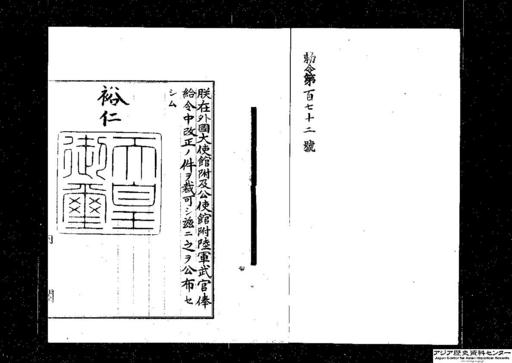 勅令第百七十二號
朕在外國大使館附及公使館附陸軍武官俸
給令中改正ノ件ヲ裁可シ茲ニ之ヲ公布セ
シム
裕仁
天皇
御璽
内閣
アジア歴史資料センター
Japan Center for Asian Historical Records